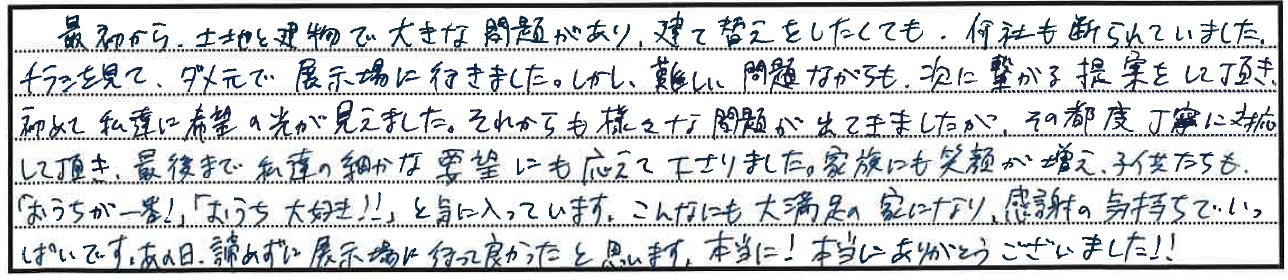 最初から、土地と建物で大きな問題があり、建て替えをしたくても、何社も断られていました。
チラシを見て、ダメ元で展示場に行きました。しかし、難しい問題ながらも、次に繋がる提案をして頂き、
初めて私達に希望の光が見えました。それからも様々な問題が出てきましたが、その都度丁寧に対応
して頂き、最後まで私達の細かな要望にも応えて下さりました。家族にも笑顔が増え、子供たちも、
「おうちが一番!」「おうち大好き!!」と気に入っています。こんなにも大満足の家になり、感謝の気持ちでいっ
ぱいです。あの日、諦めずに展示場に行って良かったと思います。本当に!本当にありがとうございました!!